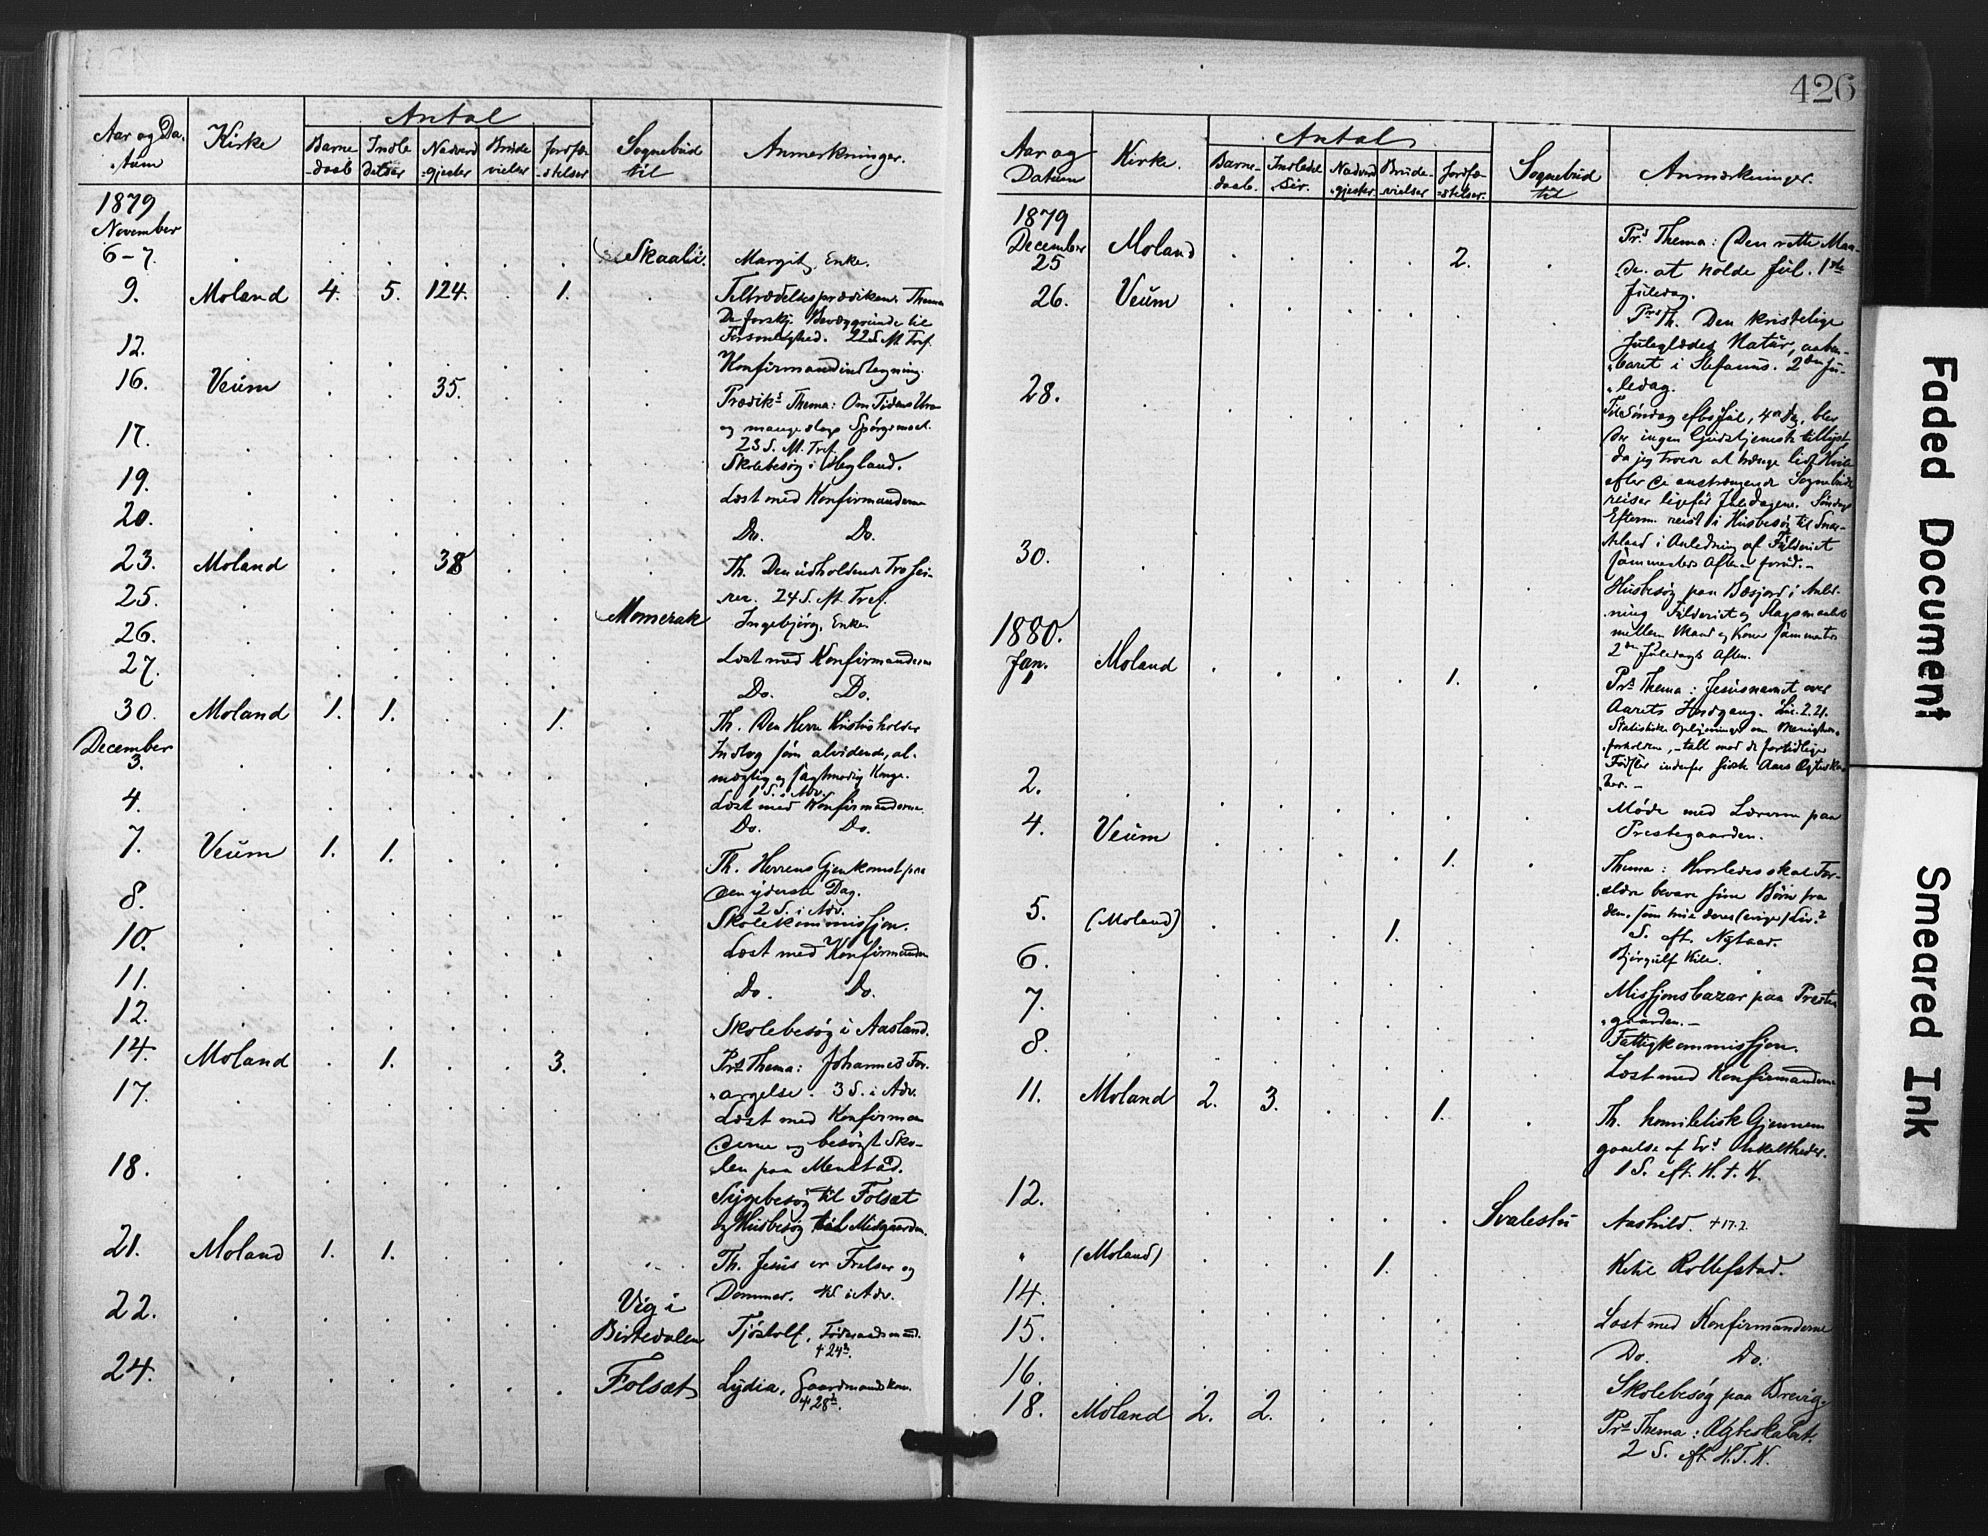 Aar og Da-
tum
Kirke
Antal
Barne
-daab
Indle
delser
Nadverd
-gjester
Brude
vielser
Jordfæ-
-stelser
Sognebud
til
Anmerkninger.
1879
November
6-7. Skaali. Margit, Enke.
9. Moland 4. 5. 124. 1. Tiltrædelsesprædiken. Thema
De forskj. Bevæggrunde til
Forsonlighed. 22 S. M. Tref.
12. Konfirmandindtegning.
16. Veum 35. Prædiks Thema: Om Tidens Uro
og mange slags Spørgsmaal.
23 S. M. Tref.
17. Skolebesøg i Høgland.
19. Læst med Konfirmanderne
20. Do. Do.
23. Moland 38 Th. Den udholdende Tro sei-
rer. 24 S. M. Tref.
25. Momerak Ingebjørg, Enke.
26. Læst med Konfirmanderne
27. Do. Do.
30. Moland 1. 1. 1. Th. Den Herre Kristus holder
Indtog som alvidende, al-
mægtig og sagtmodig Konge.
1 S. i Adv.
December
3. Læst med Konfirmanderne.
4. Do. Do.
7. Veum 1. 1. Th. Herrens Gjenkomst paa
den yderste Dag.
2 S. i Adv.
8. Skolekommission.
10. Læst med Konfirmanderne
11. Do. Do.
12. Skolebesøg i Aasland.
14. Moland 1. 3. Prs Thema: Johannes For-
argelse. 3 S. i Adv.
17. Læst med Konfirman
derne og besøgt Sko-
len paa Menstad.
18. Sygebesøg til Folsæt
og Husbesøg til Midgaarden.
21. Moland 1. 1. Th. Jesus er Frelser og
Dommer. 4 S. i Adv.
22. Vig i
Birtedalen Tjøstolf, Føderaadsmand.
† 24n.
24. Folsæt Lydia, Gaardmandskone.
† 28n.
426
Aar og
Datum
Kirke.
Antal
Barne-
daab.
Indledel
ser.
Nadverd
-gjester
Brude-
vielser
Jordfæ-
-stelser.
Sognebud
til
Anmærkninger.
1879
December
25 Moland 2. Prs Thema: Den rette Maa-
de at holde Jul. 1ste
Juledag.
26. Veum Prs Th. Den kristelige
Juleglædes Natur, aaben-
baret i Stefanus. 2den Ju-
ledag.
28. Til Søndag efter Jul, 4de Dag, blev
der ingen Gudstjeneste tillyst
da jeg troede at trænge lidt Hvile
efter de anstrængende Sognebuds
reiser ligefør Juledagene. Søndags
Efterm. reist i Husbesøg til
i Anledning af Fylderiet
sammesteds Aften forud.-
30. Husbesøg paa Bøsjord i Anled-
ning Fylderiet og Slagsmaalet
mellem Mand og Kone sammesteds
2den Juledags Aften.
1880.
Jan.
1 Moland 1. Prs Thema: Jesusnavnet over
Aarets Indgang. Luc. 2.21.
Statistiske Oplysninger om Menigheds-
forholdene, - talt mod de fortidlige
Fødsler indenfor sidste Aars Ægteska-
ber.-
2. Møde med Lærerne paa
Prestegaarden.
4. Veum 1. Thema: Hvorledes skal For-
ældre bevare sine Børn fra
dem, som true deres (evige) Liv?
S. eft. Nytaar.
5. (Moland) 1. Bjørgulf Kile.
6. Missionsbazar paa Preste-
gaarden.-
7. Fattigkommission.
8. Læst med Konfirmanderne
11. Moland 2. 3. 1. Th. homiletisk Gjennem
gaaelse af Evs Enkeltheder.
1 S. eft. H. t. K.
12. Svalestu Aashild. † 17.2.
" (Moland) 1. Ketil Rollefstad.
14. Læst med Konfirmanderne
15. Do. Do.
16. Skolebesøg paa Brevig.
18. Moland 2. 2. Prs Thema: Ægteskabet.
2 S. eft. H. T. K.
Faded Document
Smeared Ink